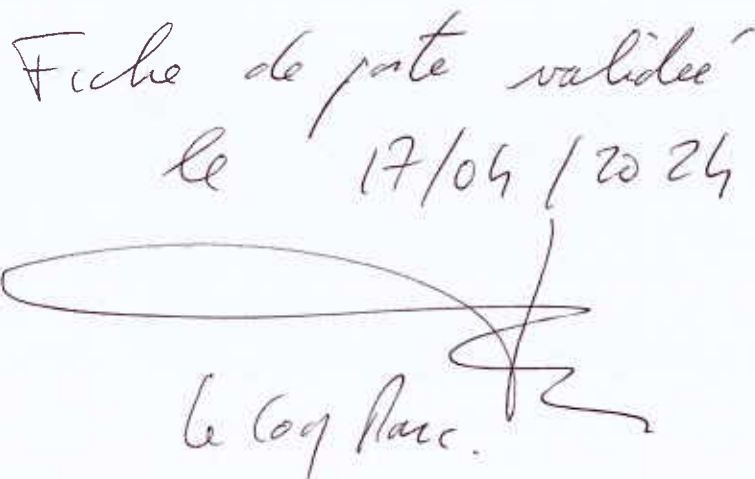 Fiche de poste validée
le 17/04/2024
Le Coq Marc.